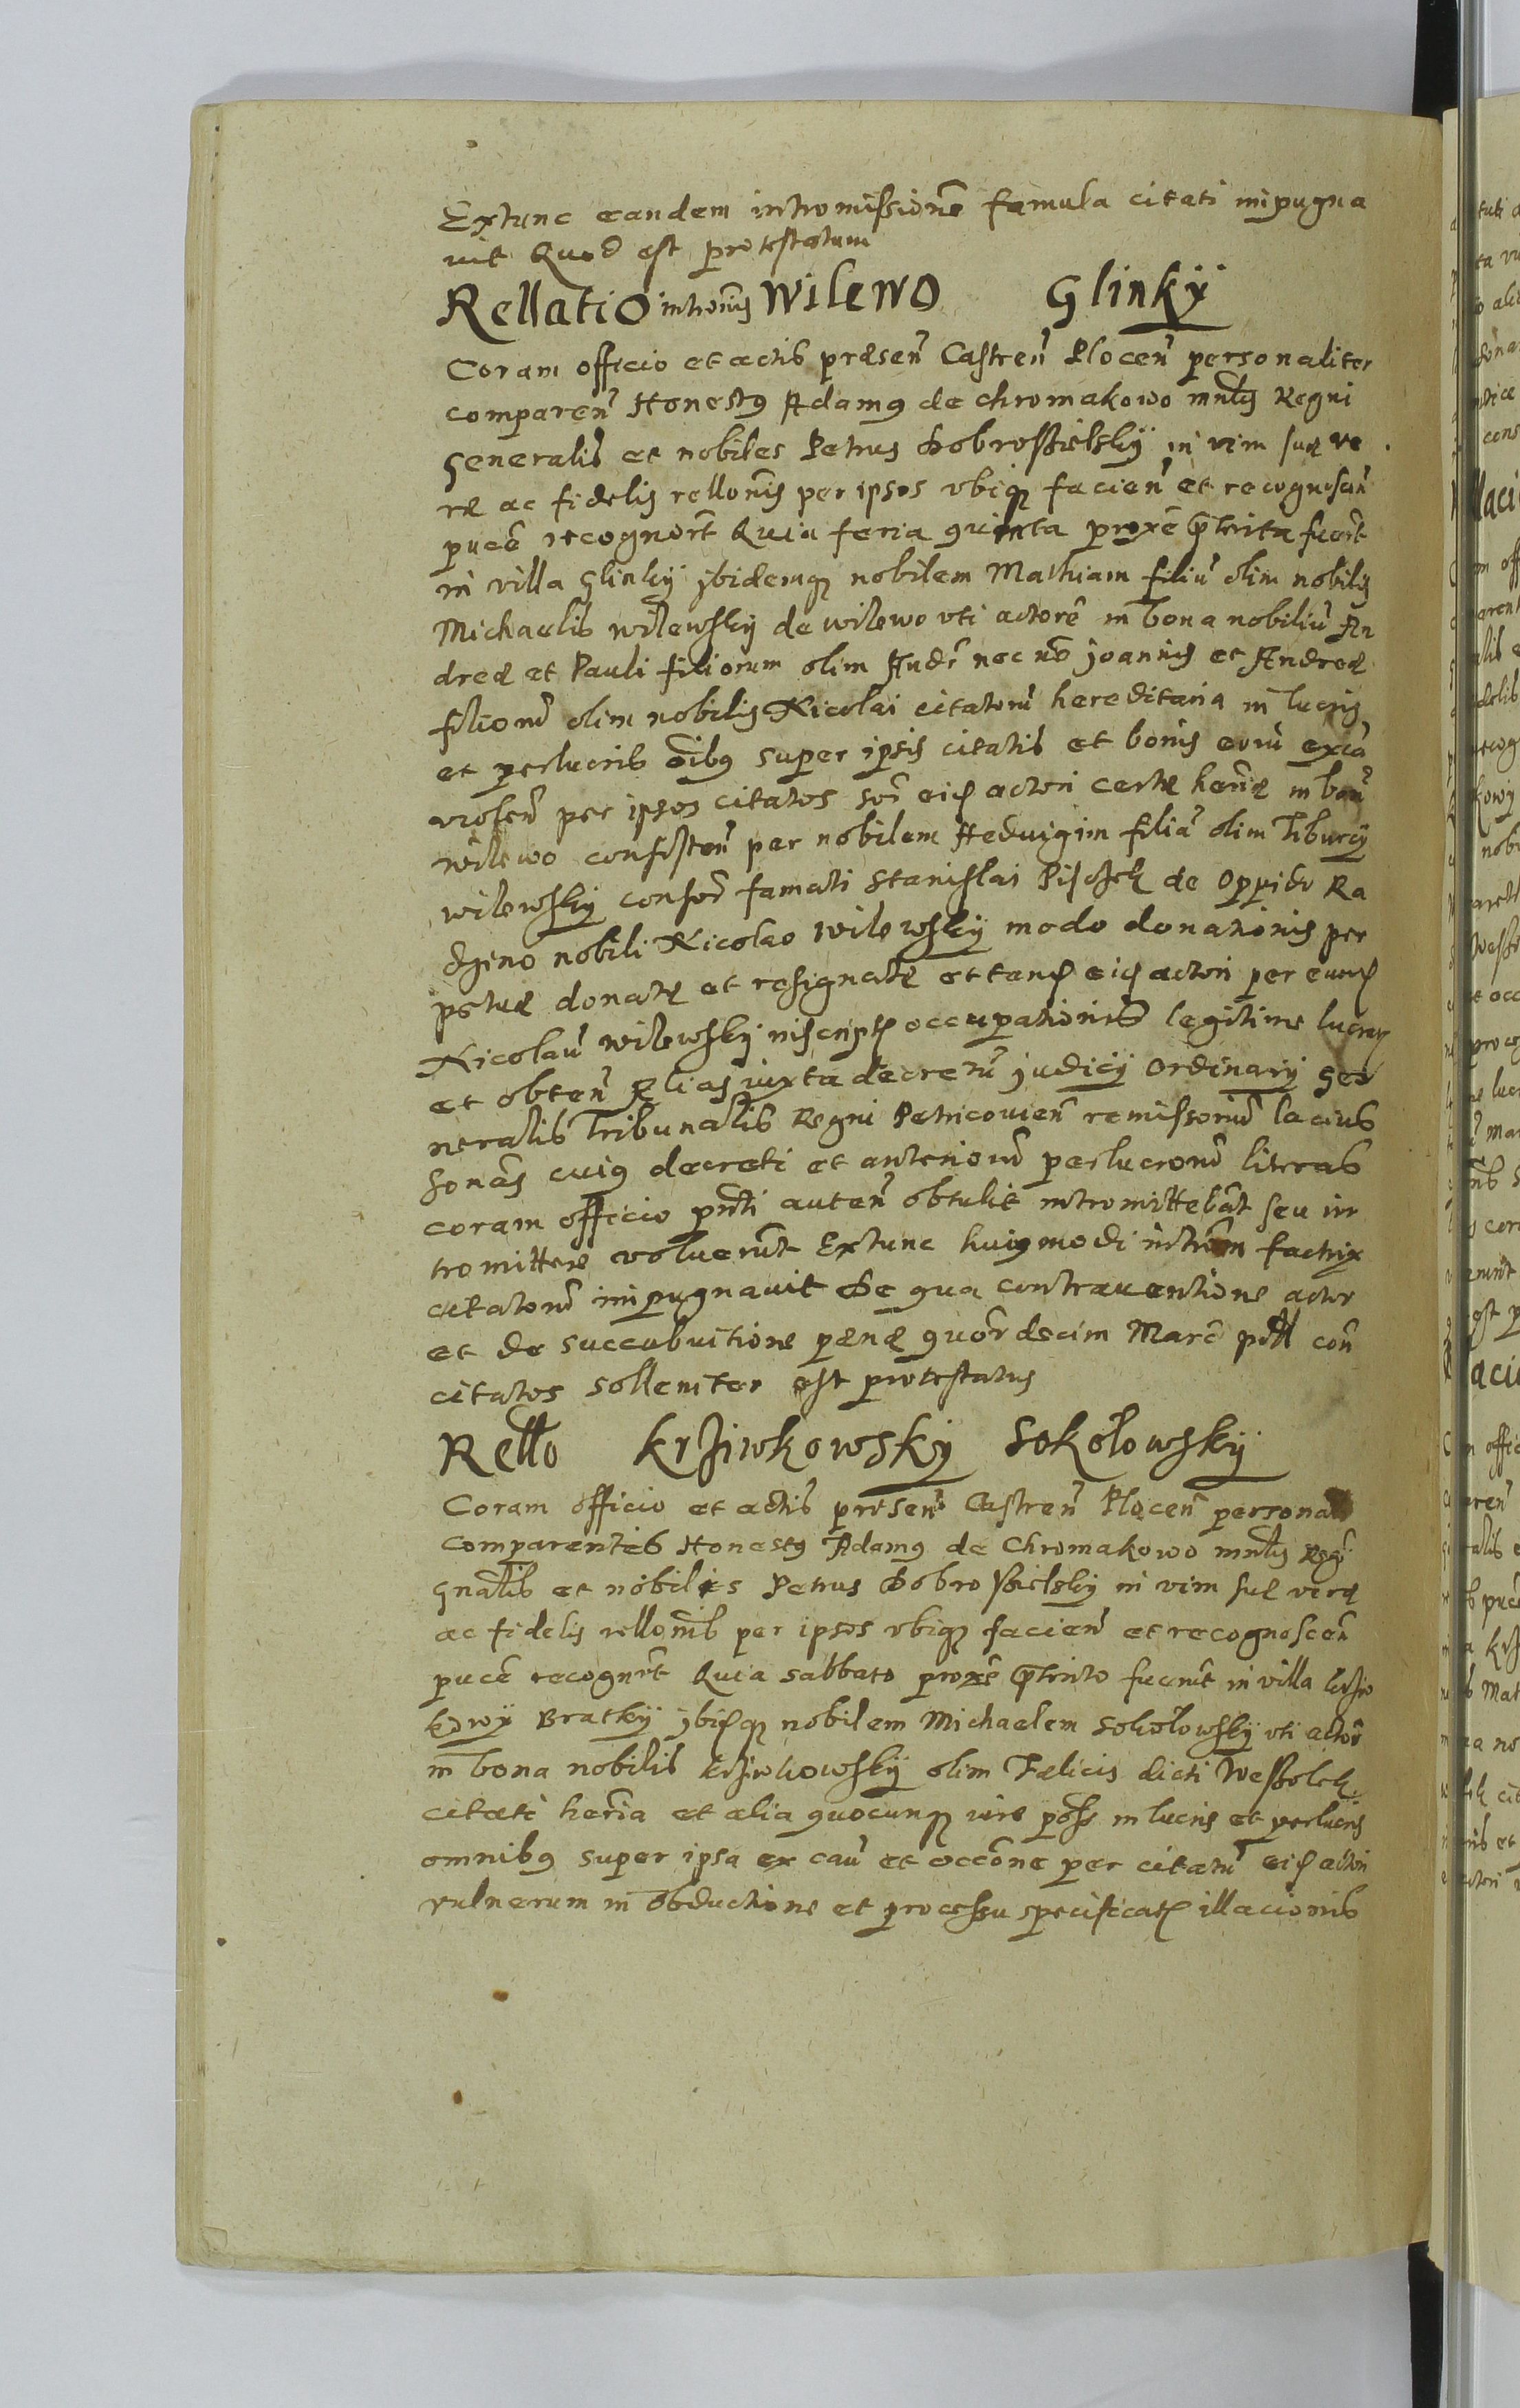 Extunc eandem intromissionē famula citati impugna
vit Quod est protestatum
Rellatio intromis Wilewo Glinky
Coram officio et actis præsen̄ Castren̄ Plocen̄ personaliter
comparen̄ Honestꝯ Adamꝯ de chromakowo mnłis Regni
generalis et nobiles Petrus Dobrossielsky in vim suę ve
rę ac fidelis rellonis per ipsos vbiqꝫ facien̄ et recognoscen̄
pucē recognorūt Quia feria quinta proxē p̄terita fuerūt
in villa Glinky ibidemqꝫ nobilem Mathiam filiū olim nobilis
Michaelis wilewsky de wilewo vti actorē in bona nobiliū An
dreæ et Pauli filiorum olim Andr̄ nec nō Joannis et Andreæ
filiorū olim nobilis Nicolai citatorū hereditaria in lucris
et perlucris oībꝯ super ipsis citatis et bonis eorū ex cā
violen̄ per ipsos citatos sorī eid actori certę herīę in bon̄
wilewo consisten̄ per nobilem Hedvigim filiā olim Tiburcy
wilewsky consor̄ famati Stanislai de Oppido Ra
nobili Nicolao wilewsky modo donationis per
petuę donatę et resignatę et tand eid actori per eund
Nicolaū wilewsky inscript occupationis legitime lucrat
et obten̄ iuxta decretū judicij ordinarij ge
neralis Tribunalis Regni Petricovien̄ remissoriū lacius
sonās cuiꝯ decreti et anteriorū perlucrorū literas
coram officio pn̄ti auten̄ obtulit intromittebāt seu in
tromittere voluerūt Extunc huiꝯmodi intrōm factrix
citatorū impugnavit De qua contraventione actor
et de succubuitione pænæ quor̄decim Marc̄ pōll con̄
citatos sollemiter est protestatus
Rello krziwkowsky Sokołowsky
Coram officio et actis presen̄ Castren̄ Plocen̄ personał
Comparentes Honestꝯ Adamꝯ de Chromakowo mnłis Regī
Gnałis et nobiles Petrus Dobrossielsky in vim suę verę
ac fidelis rellonis per ipsos vbiqꝫ facien̄ et recognoscen̄
pucē recognrūt Quia sabbato proxē p̄terito fuerūt in villa krziw
kowy Bratky ibidqꝫ nobilem Michaelem Sokołowsky vti actorē
in bona nobilis krziwkowsky olim Fælicis dicti Wessolek
citati herīa et alia quocunqꝫ iure poss in lucris et perlucris
omnibꝯ super ipsa ex caū et occōne per citatū eid actori
vulnerum in obductione et processu specificat illacionis